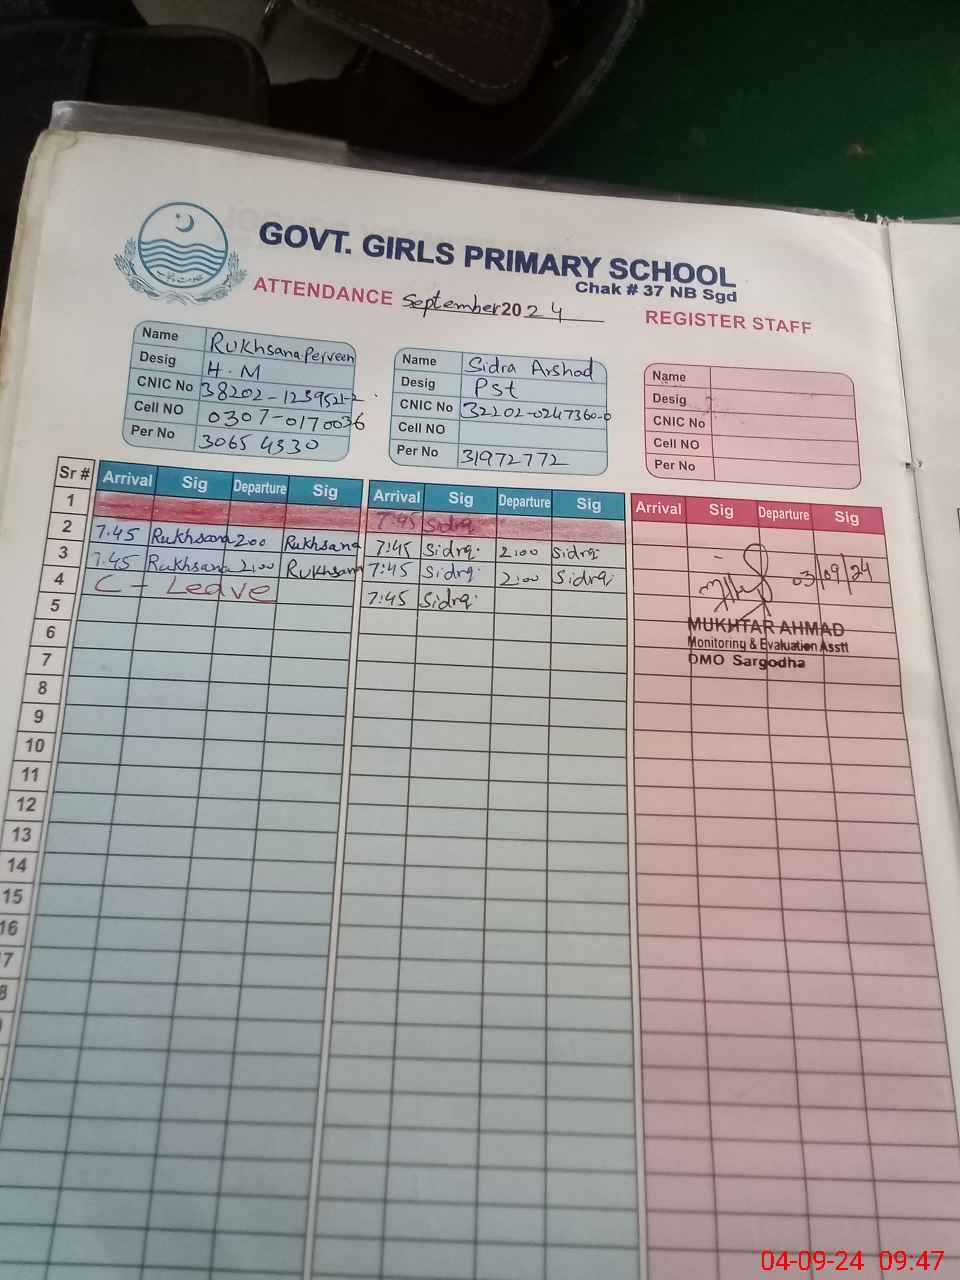 GOVT. GIRLS PRIMARY SCHOOL
Chak # 37 NB Sgd
ATTENDANCE September 2024 REGISTER STAFF
Name Rukhsana Perveen
Desig H.M
CNIC No 38202-1239521-2
Cell NO 0307-0170036
Per No 30654330
Name Sidra Arshad
Desig Pst
CNIC No 32202-0247360-0
Cell NO
Per No 31972772
Name
Desig
CNIC No
Cell NO
Per No
Sr # Arrival Sig Departure Sig Arrival Sig Departure Sig Arrival Sig Departure Sig
1 7:45 Sidra
2 7:45 Rukhsana 2:00 Rukhsana 7:45 Sidra 2:00 Sidra
3 7:45 Rukhsana 2:00 Rukhsana 7:45 Sidra 2:00 Sidra 03/09/24
4 C - Leave 7:45 Sidra
5
MUKHTAR AHMAD
6
Monitoring & Evaluation Asstt
DMO Sargodha
7
8
9
10
11
12
13
14
15
16
7
8
04-09-24 09:47